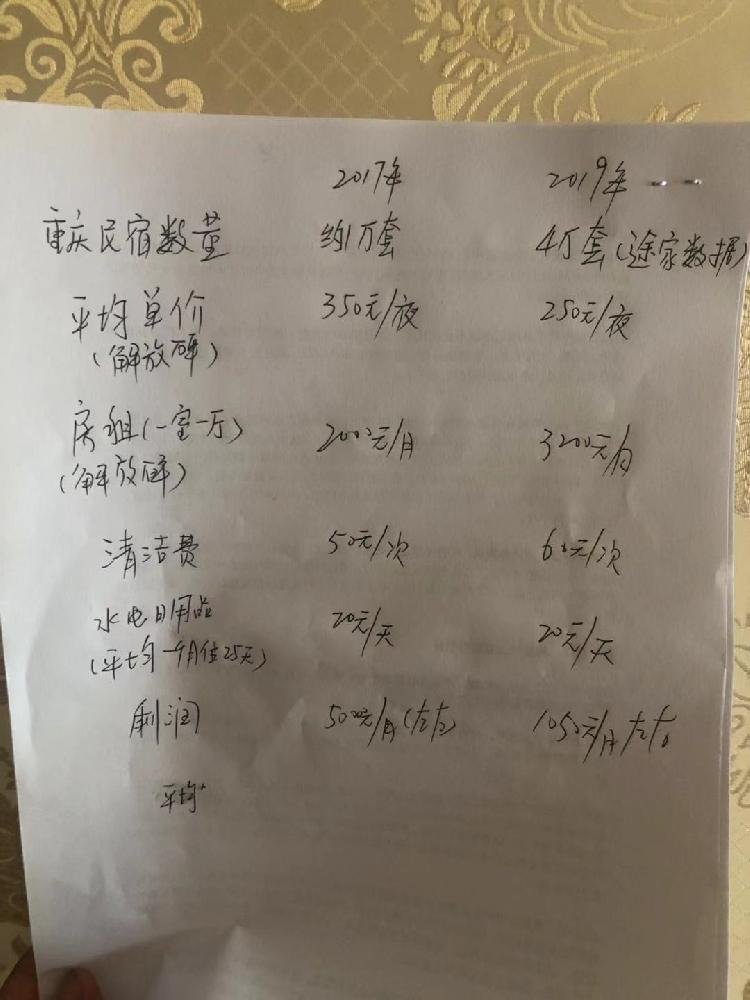 2017年 2019年
重庆民宿数量 约1万套 4万套(途家数据)
平均单价 350元/夜 250元/夜
(解放碑)
房租(一室一厅) 2000元/月 3200元/月
(解放碑)
清洁费 50元/次 60元/次
水电日用品 20元/天 20元/天
(平均一个月住25天)
利润 5000元/月(左右) 1050元/月左右
平均